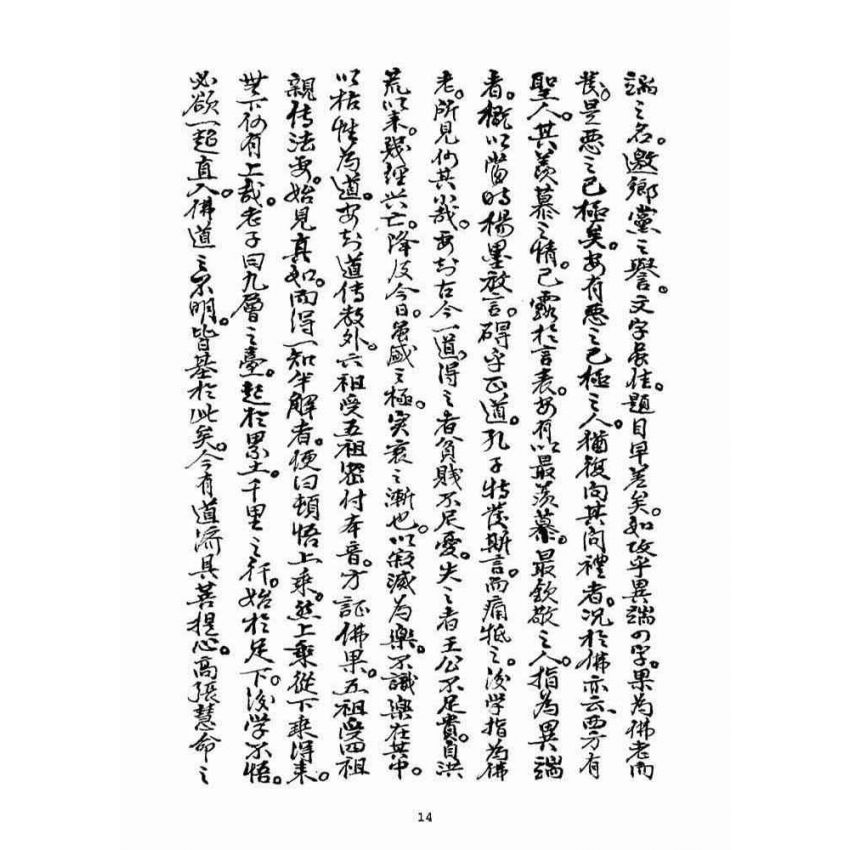 端之名。邀鄉黨之譽。文字甚佳。題目早差矣。如攻乎異端の字。果為佛老而
發。是惡之已極矣。安有惡之已極之人。猶復向其問禮者。况於佛亦云。西方有
聖人。其羨慕之情。已露於言表。安有以最羨慕。最欽敬之人。指為異端
者。概以當時楊墨放言。碍乎正道。孔子特發斯言。而痛牴之。後學指為佛
老。所見何其小哉。安知古今一道。得之者貧賤不足憂。失之者王公不足貴。自洪
荒以來。幾經興亡。降及今日。虽盛之極。实衰之漸也。以寂滅為樂。不識樂在其中。
以枯性為道。安知道傳教外。六祖受五祖密付本音。方証佛果。五祖受四祖
親傳法要。始見真如。而得一知半解者。便曰頓悟上乘。然上乘從下乘得來。
無下何有上哉。老子曰九層之臺。起於累土。千里之行。始於足下。後学不悟。
必欲一超直入佛道之不明。皆基於此矣。今有道济具菩提心。高張慧命之
14